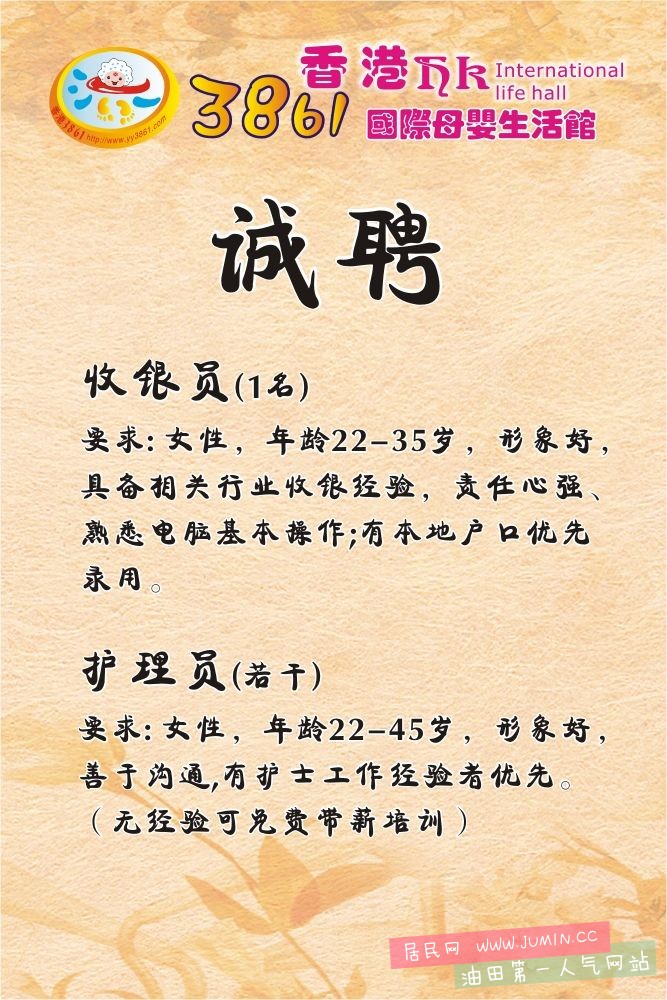 香港3861 http://www.yy3861.com
3861
香港hk International
life hall
國際母嬰生活館
诚聘
收银员(1名)
要求:女性，年龄22-35岁，形象好，
具备相关行业收银经验，责任心强、
熟悉电脑基本操作;有本地户口优先
录用。
护理员(若干)
要求:女性，年龄22-45岁，形象好，
善于沟通,有护士工作经验者优先。
（无经验可免费带薪培训）
居民网 WWW.JUMIN.CC
油田第一人气网站